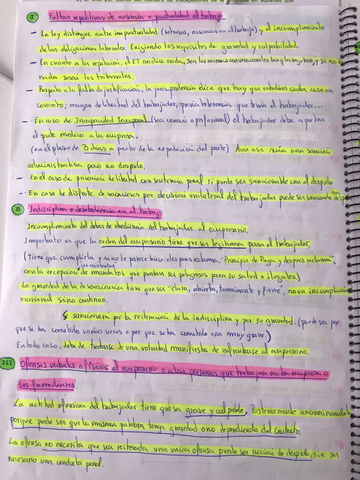 I Faltas repetitivas de asistencia o puntualidad al trabajo
- La ley distingue entre impuntualidad (retrasos, ausencias en el trabajo) y el incumplimiento
de las obligaciones laborales. Exigiendo los requisitos de gravedad y culpabilidad.
- En cuanto a las repetición, el ET no dice nada,
serán los tribunales.
- Respecto a la falta de justificación, la jurisprudencia dice que hay que estudiar cada caso en
concreto; margen de libertad del trabajador, previa tolerancia que tenía el trabajador...
- En caso de Incapacidad Temporal (sea común o profesional) el trabajador debe aportar
el parte médico a la empresa.
(en el plazo de 3 días a partir de la expedición del parte). Aun así sería una sanción
administrativa pero no despido.
- En el caso de privación de libertad con sentencia penal si puede ser sancionable con el despido
- En caso de disfrute de vacaciones por decisión unilateral del trabajador puede ser sancionado
II Indisciplina o desobediencia en el trabajo
Incumplimiento del deber de obediencia del trabajador al empresario.
Importante es que la orden del empresario tiene que ser legítima para el trabajador,
(tiene que cumplirla y si no le parece bien después reclamar. "Principio de Paga y después reclama",
con la excepción de mandatos que puedan ser peligrosos para su salud o ilegales)
La gravedad de la desobediencia tiene que ser "clara, abierta, terminante y firme", no un incumplimiento
ocasional sino continuo.
sancionara por la reiteración de la indisciplina y por su gravedad. (puede ser por
que se ha cometido varias veces o por que se ha cometido una muy grave.)
En todo caso, debe de tratarse de una voluntad manifiesta de desobediencia al empresario.
III Ofensas verbales o físicas al empresario o a las personas que trabajan en la empresa o
los familiares
La actitud ofensiva del trabajador tiene que ser grave y culpable. Posteriormente
porque puede ser que la misma palabra tenga gravedad o no dependiendo del contexto.
La ofensa no necesita que sea reiterada una única ofensa puede ser acción de despido, sin ser
necesario una conducta penal.